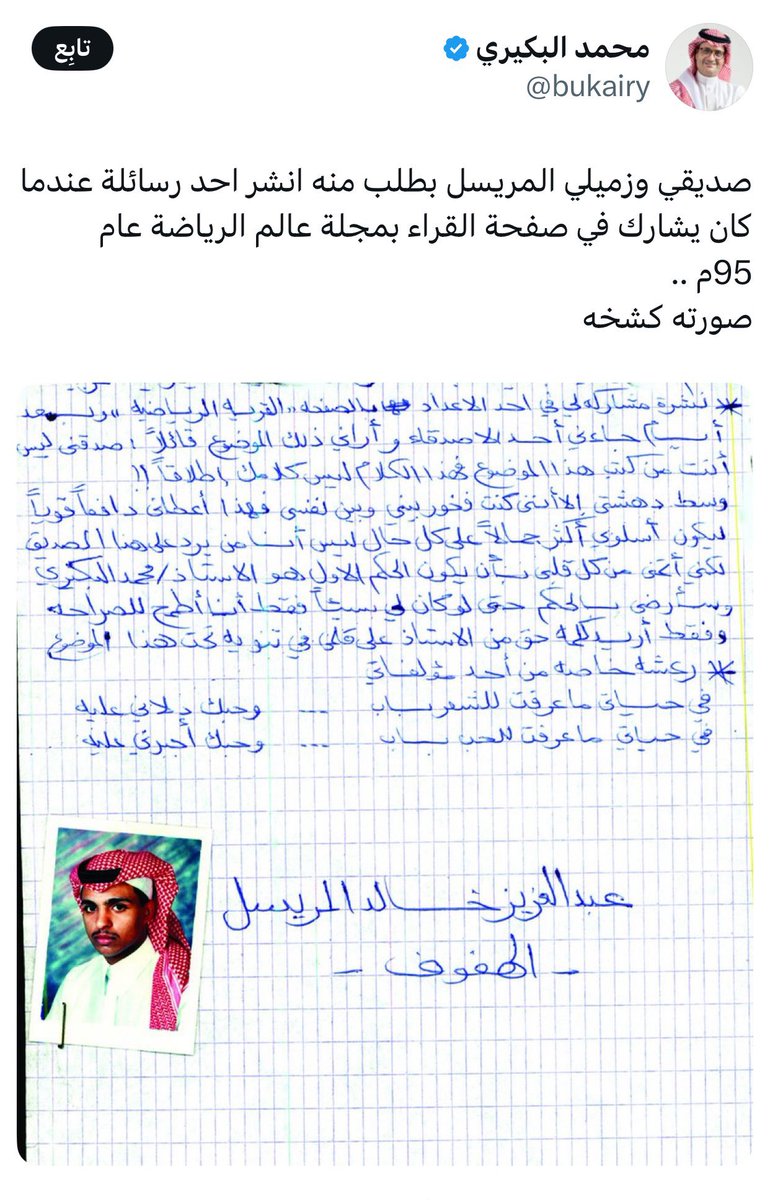 تابِع
محمد البكيري
@bukairy
صديقي وزميلي المريسل بطلب منه انشر احد رسائلة عندما
كان يشارك في صفحة القراء بمجلة عالم الرياضة عام
95م ..
صورته كشخه
* نشرة مشاركه لي في احد الاعداد بالصفحه «القريه الرياضيه» وبعد
أيام جاءني أحد الاصدقاء وأراني ذلك الموضوع قائلاً: صدقني ليس
أنت من كتب هذا الموضوع فهذا الكلام ليس كلامك إطلاقاً !!
وسط دهشتي إلا أنني كنت فخور بيني وبين نفسي فهذا أعطاني دافعاً قوياً
ليكون أسلوبي أكثر جمالاً على كل حال ليس أنا من يرد على هذا الصديق
لكني أتمنى من كل قلبي بأن يكون الحكم الاول هو الاستاذ/محمد البكيري
وسأرضى بالحكم حتى لو كان لي سيئاً فقط أنا أطمح للصراحه
وفقط أريد كلمه حق من الاستاذ على قلمي في تنويه تحت هذا الموضوع
* رعشه خاصه من أحد مؤلفاتي
في حياتي ماعرفت للشعر باب ... وحبك دلاني عليه
في حياتي ماعرفت للحب باب ... وحبك أجبرني عليه
عبدالعزيز خالد المريسل
- الهفوف -